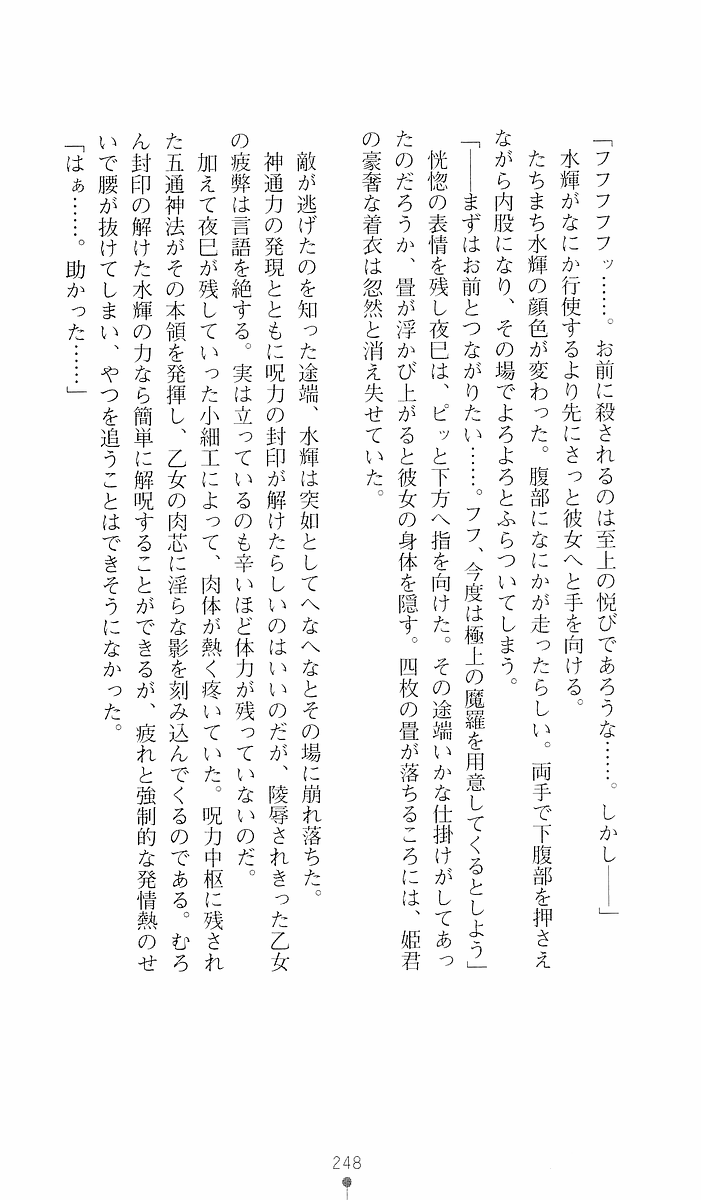 「フフフフッ……。お前に殺されるのは至上の悦びであろうな……。しかし――」
水輝がなにか行使するより先にさっと彼女へと手を向ける。
たちまち水輝の顔色が変わった。腹部になにかが走ったらしい。両手で下腹部を押さえ
ながら内股になり、その場でよろよろとふらついてしまう。
「――まずはお前とつながりたい……。フフ、今度は極上の魔羅を用意してくるとしよう」
恍惚の表情を残し夜巳は、ピッと下方へ指を向けた。その途端いかな仕掛けがしてあっ
たのだろうか、畳が浮かび上がると彼女の身体を隠す。四枚の畳が落ちるころには、姫君
の豪奢な着衣は忽然と消え失せていた。
敵が逃げたのを知った途端、水輝は突如としてへなへなとその場に崩れ落ちた。
神通力の発現とともに呪力の封印が解けたらしいのはいいのだが、陵辱されきった乙女
の疲弊は言語を絶する。実は立っているのも辛いほど体力が残っていないのだ。
加えて夜巳が残していった小細工によって、肉体が熱く疼いていた。呪力中枢に残され
た五通神法がその本領を発揮し、乙女の肉芯に淫らな影を刻み込んでくるのである。むろ
ん封印の解けた水輝の力なら簡単に解呪することができるが、疲れと強制的な発情熱のせ
いで腰が抜けてしまい、やつを追うことはできそうになかった。
「はぁ……。助かった……」
248